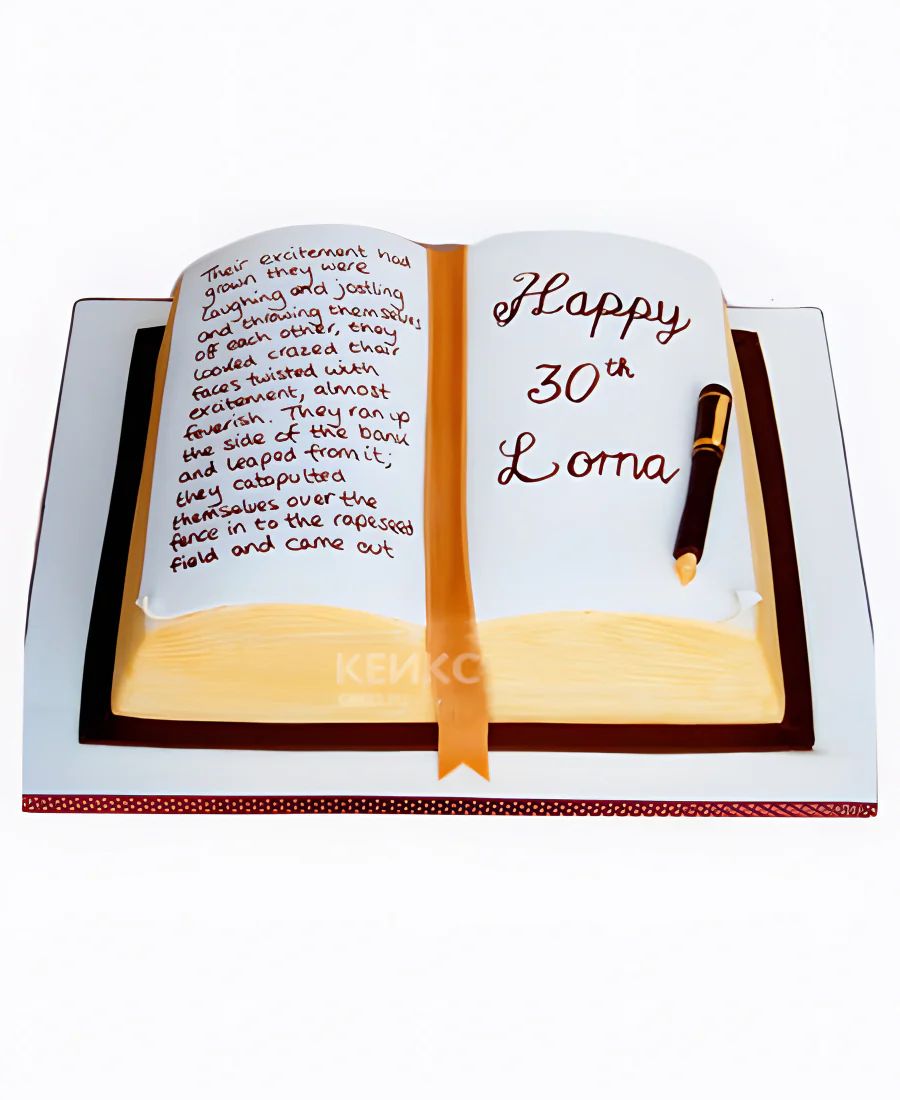 Their excitement had
grown they were
laughing and jostling
and throwing themselves
off each other, they
looked crazed their
faces twisted with
excitement, almost
feverish. They ran up
the side of the bank
and leaped from it;
they catopulted
themselves over the
fence in to the rapeseed
field and came out
Happy
30th
Lorna